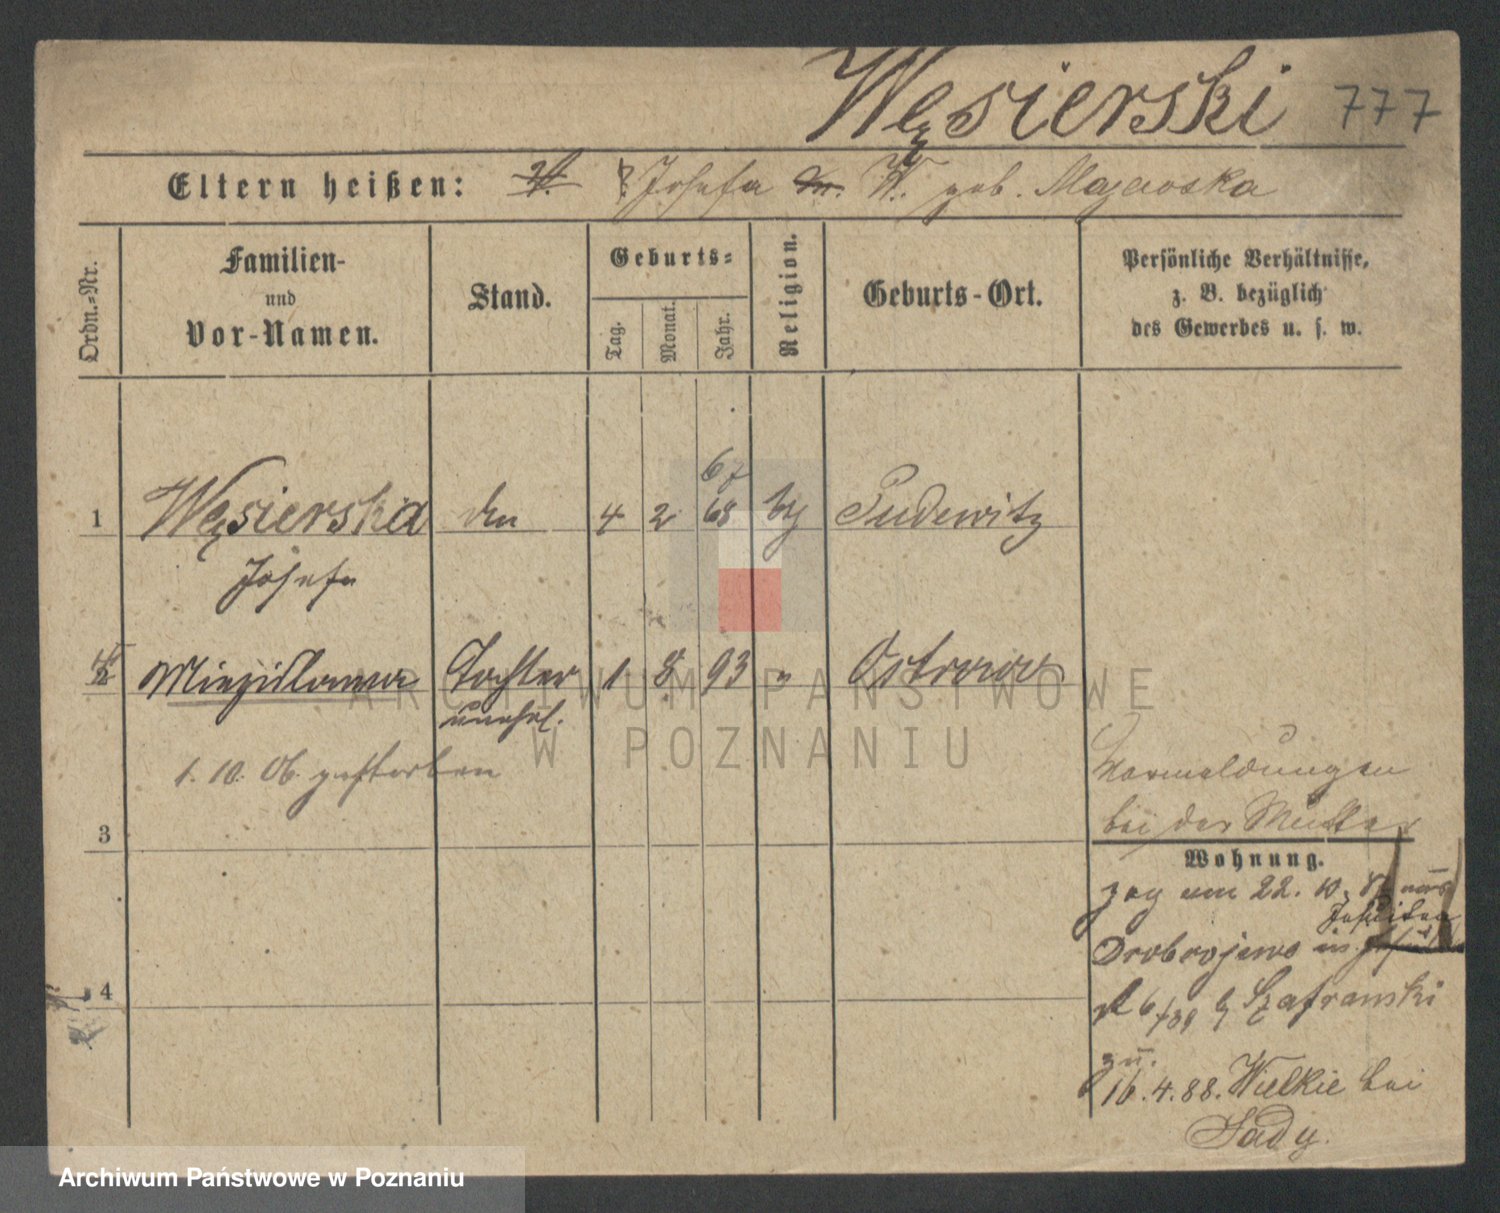 Węsierski 777
Eltern heißen: Josefa W. geb. Majewska
Ordn.-Nr.
Familien-
und
Vor-Namen.
Stand.
Geburts-
Tag.
Monat.
Jahr.
Religion.
Geburts-Ort.
Persönliche Verhältnisse,
z. B. bezüglich
des Gewerbes u. s. w.
67
1 Węsierska 4 2 68 Pudewitz
Josefa
2 Tochter 1 8 93 " Ostrow
unehl.
1. 10. 06. gestorben
ARCHIWUM PAŃSTWOWE
W POZNANIU
Vormeldungen
bei der Mutter
3
Wohnung.
zog am 22. 10.
Jesuiten
Drobrojewo in
6/ Szafranski
4
zu.
16.4.88. Wielkie bei
Sady.
Archiwum Państwowe w Poznaniu